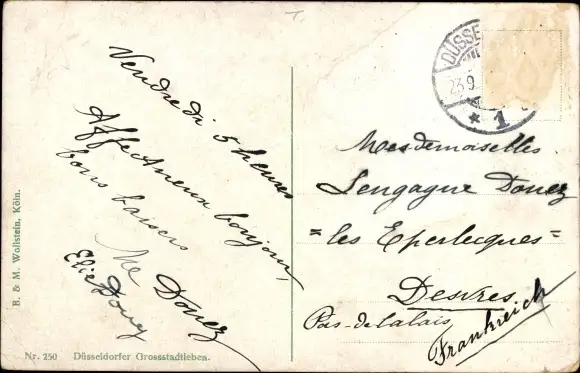 Vendredi 5 heures
Affectueux bonjour,
bons baisers
Me Douez
Elie Douez
B. & M. Wollstein, Köln.
Nr. 250 Düsseldorfer Grossstadtleben.
DÜSSE
23.9
* 1
Mesdemoiselles
Lengagne Douez
=les Eperlecques=
Desvres
Pas-de-Calais
Frankreich